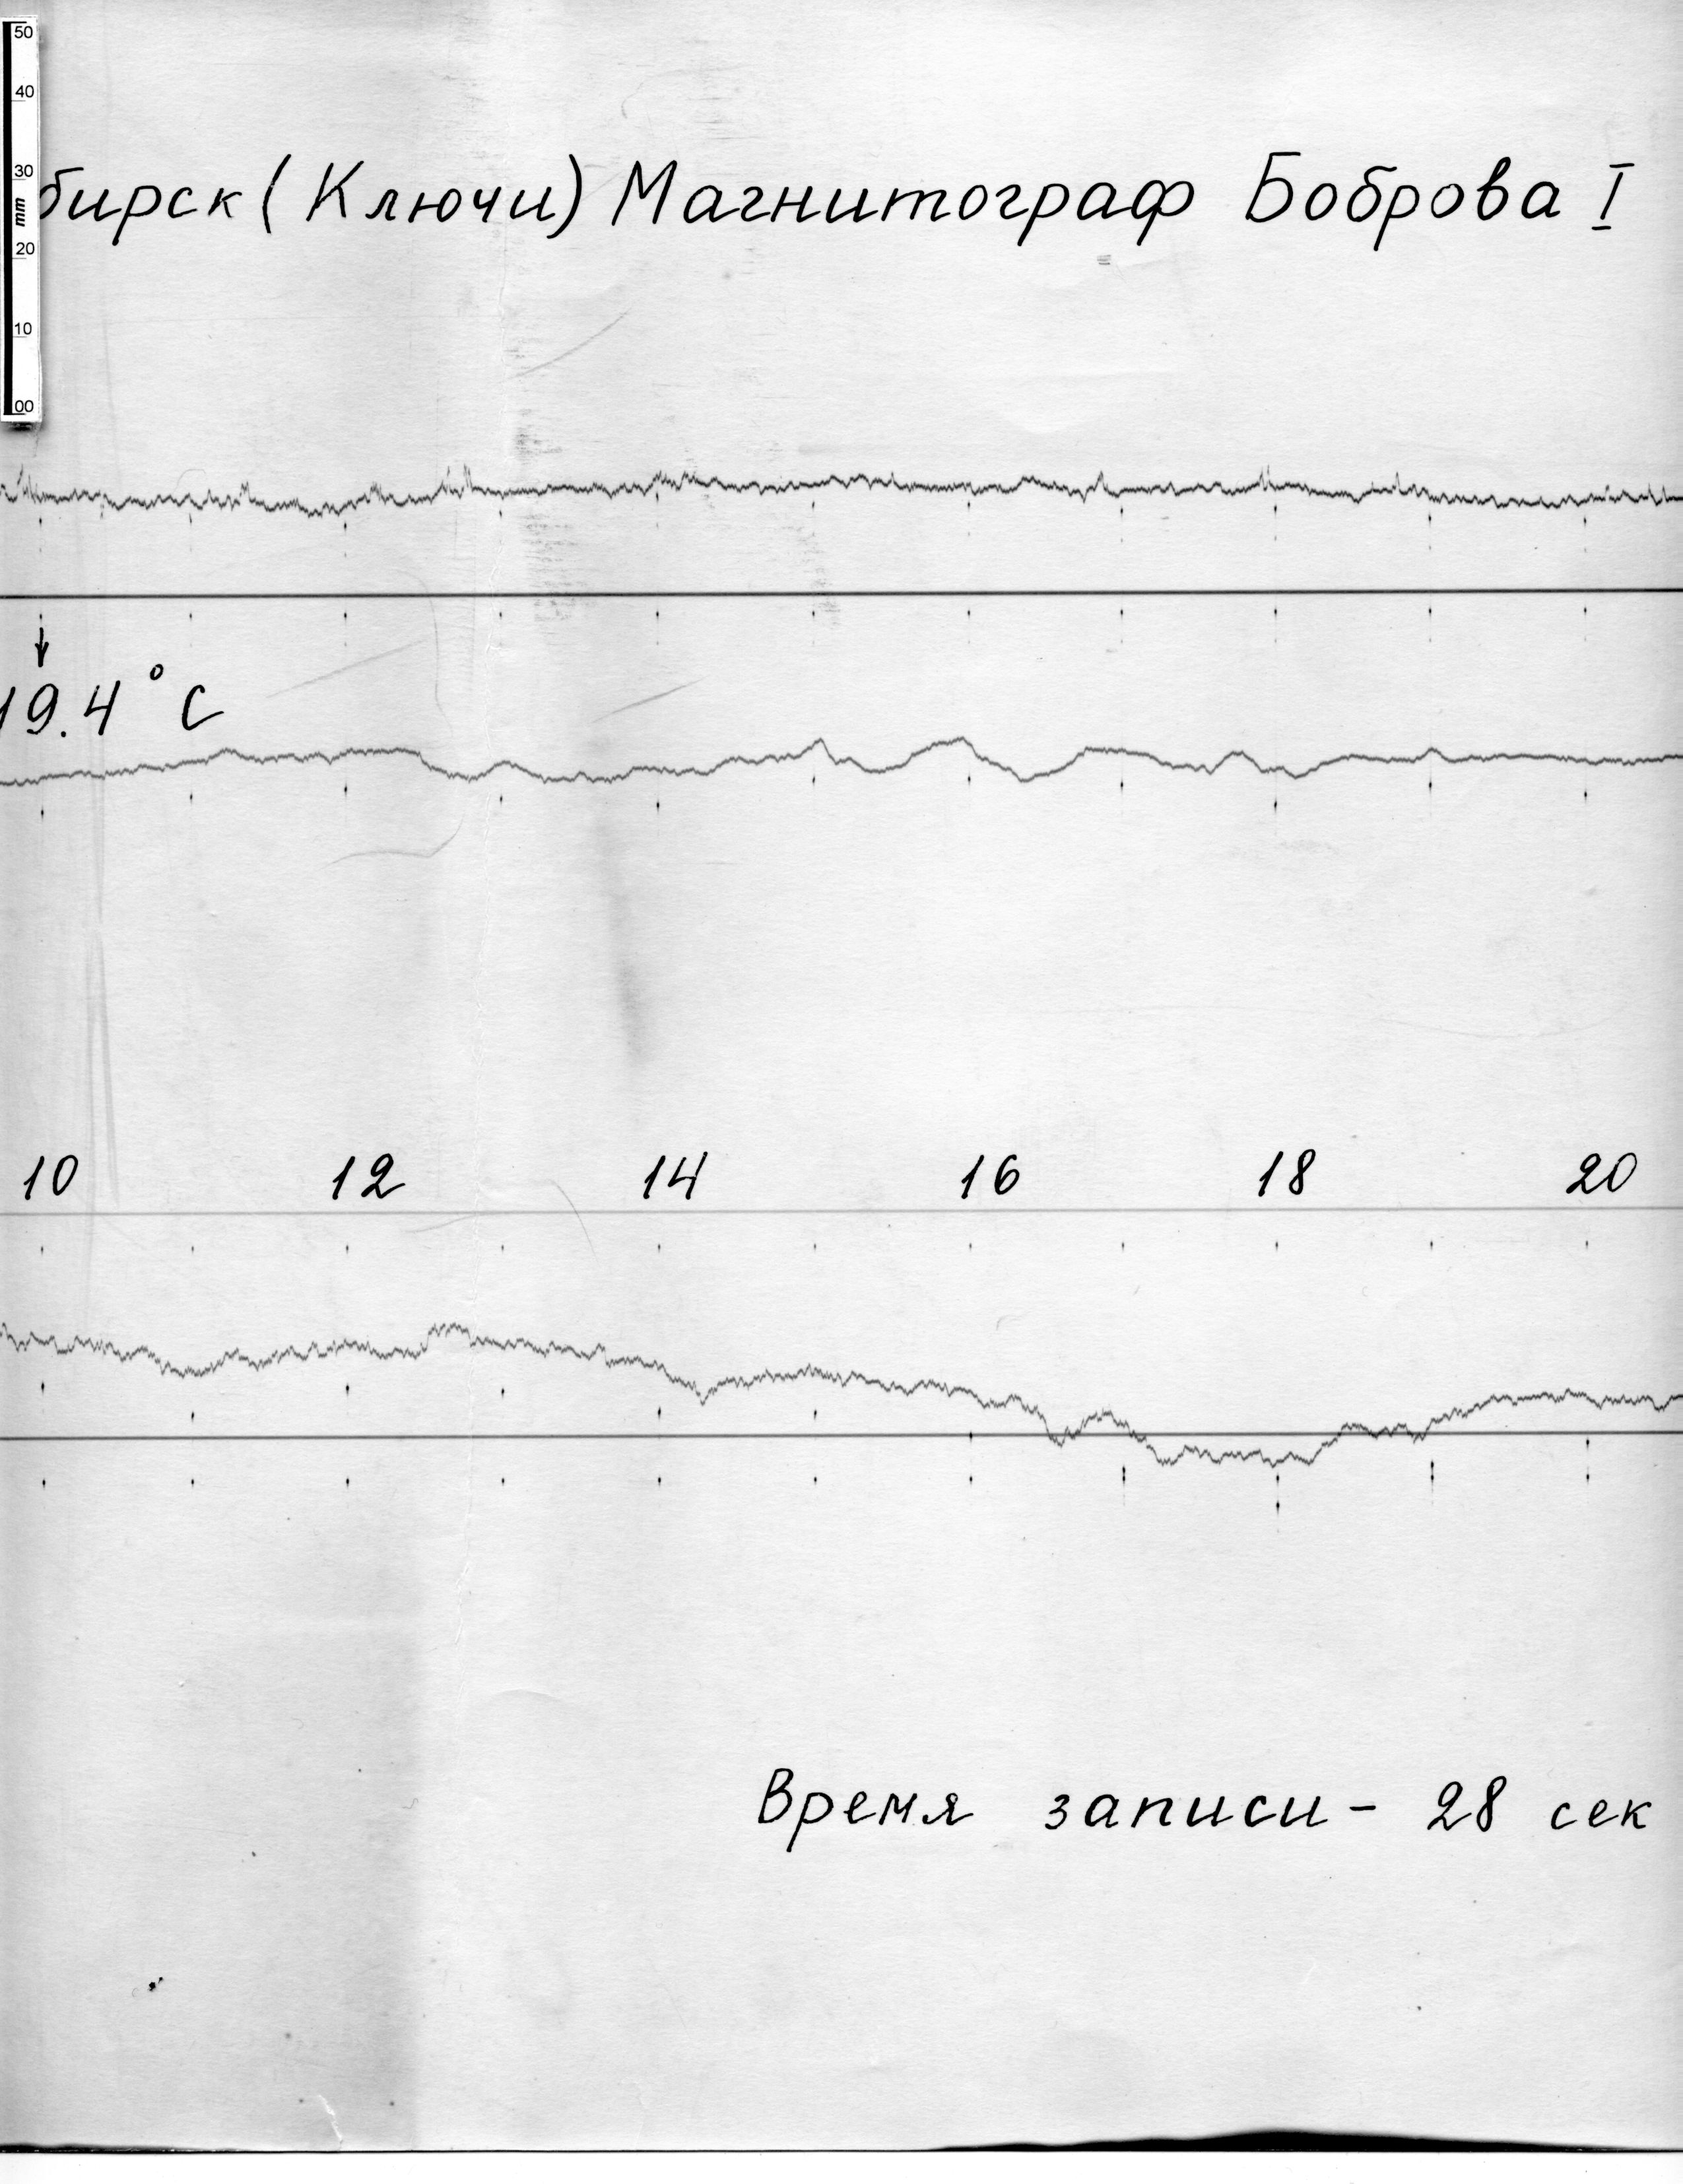 50
40
30
mm
20
10
00
бирск (Ключи) Магнитограф Боброва I
19.4° C
10 12 14 16 18 20
Время записи - 28 сек